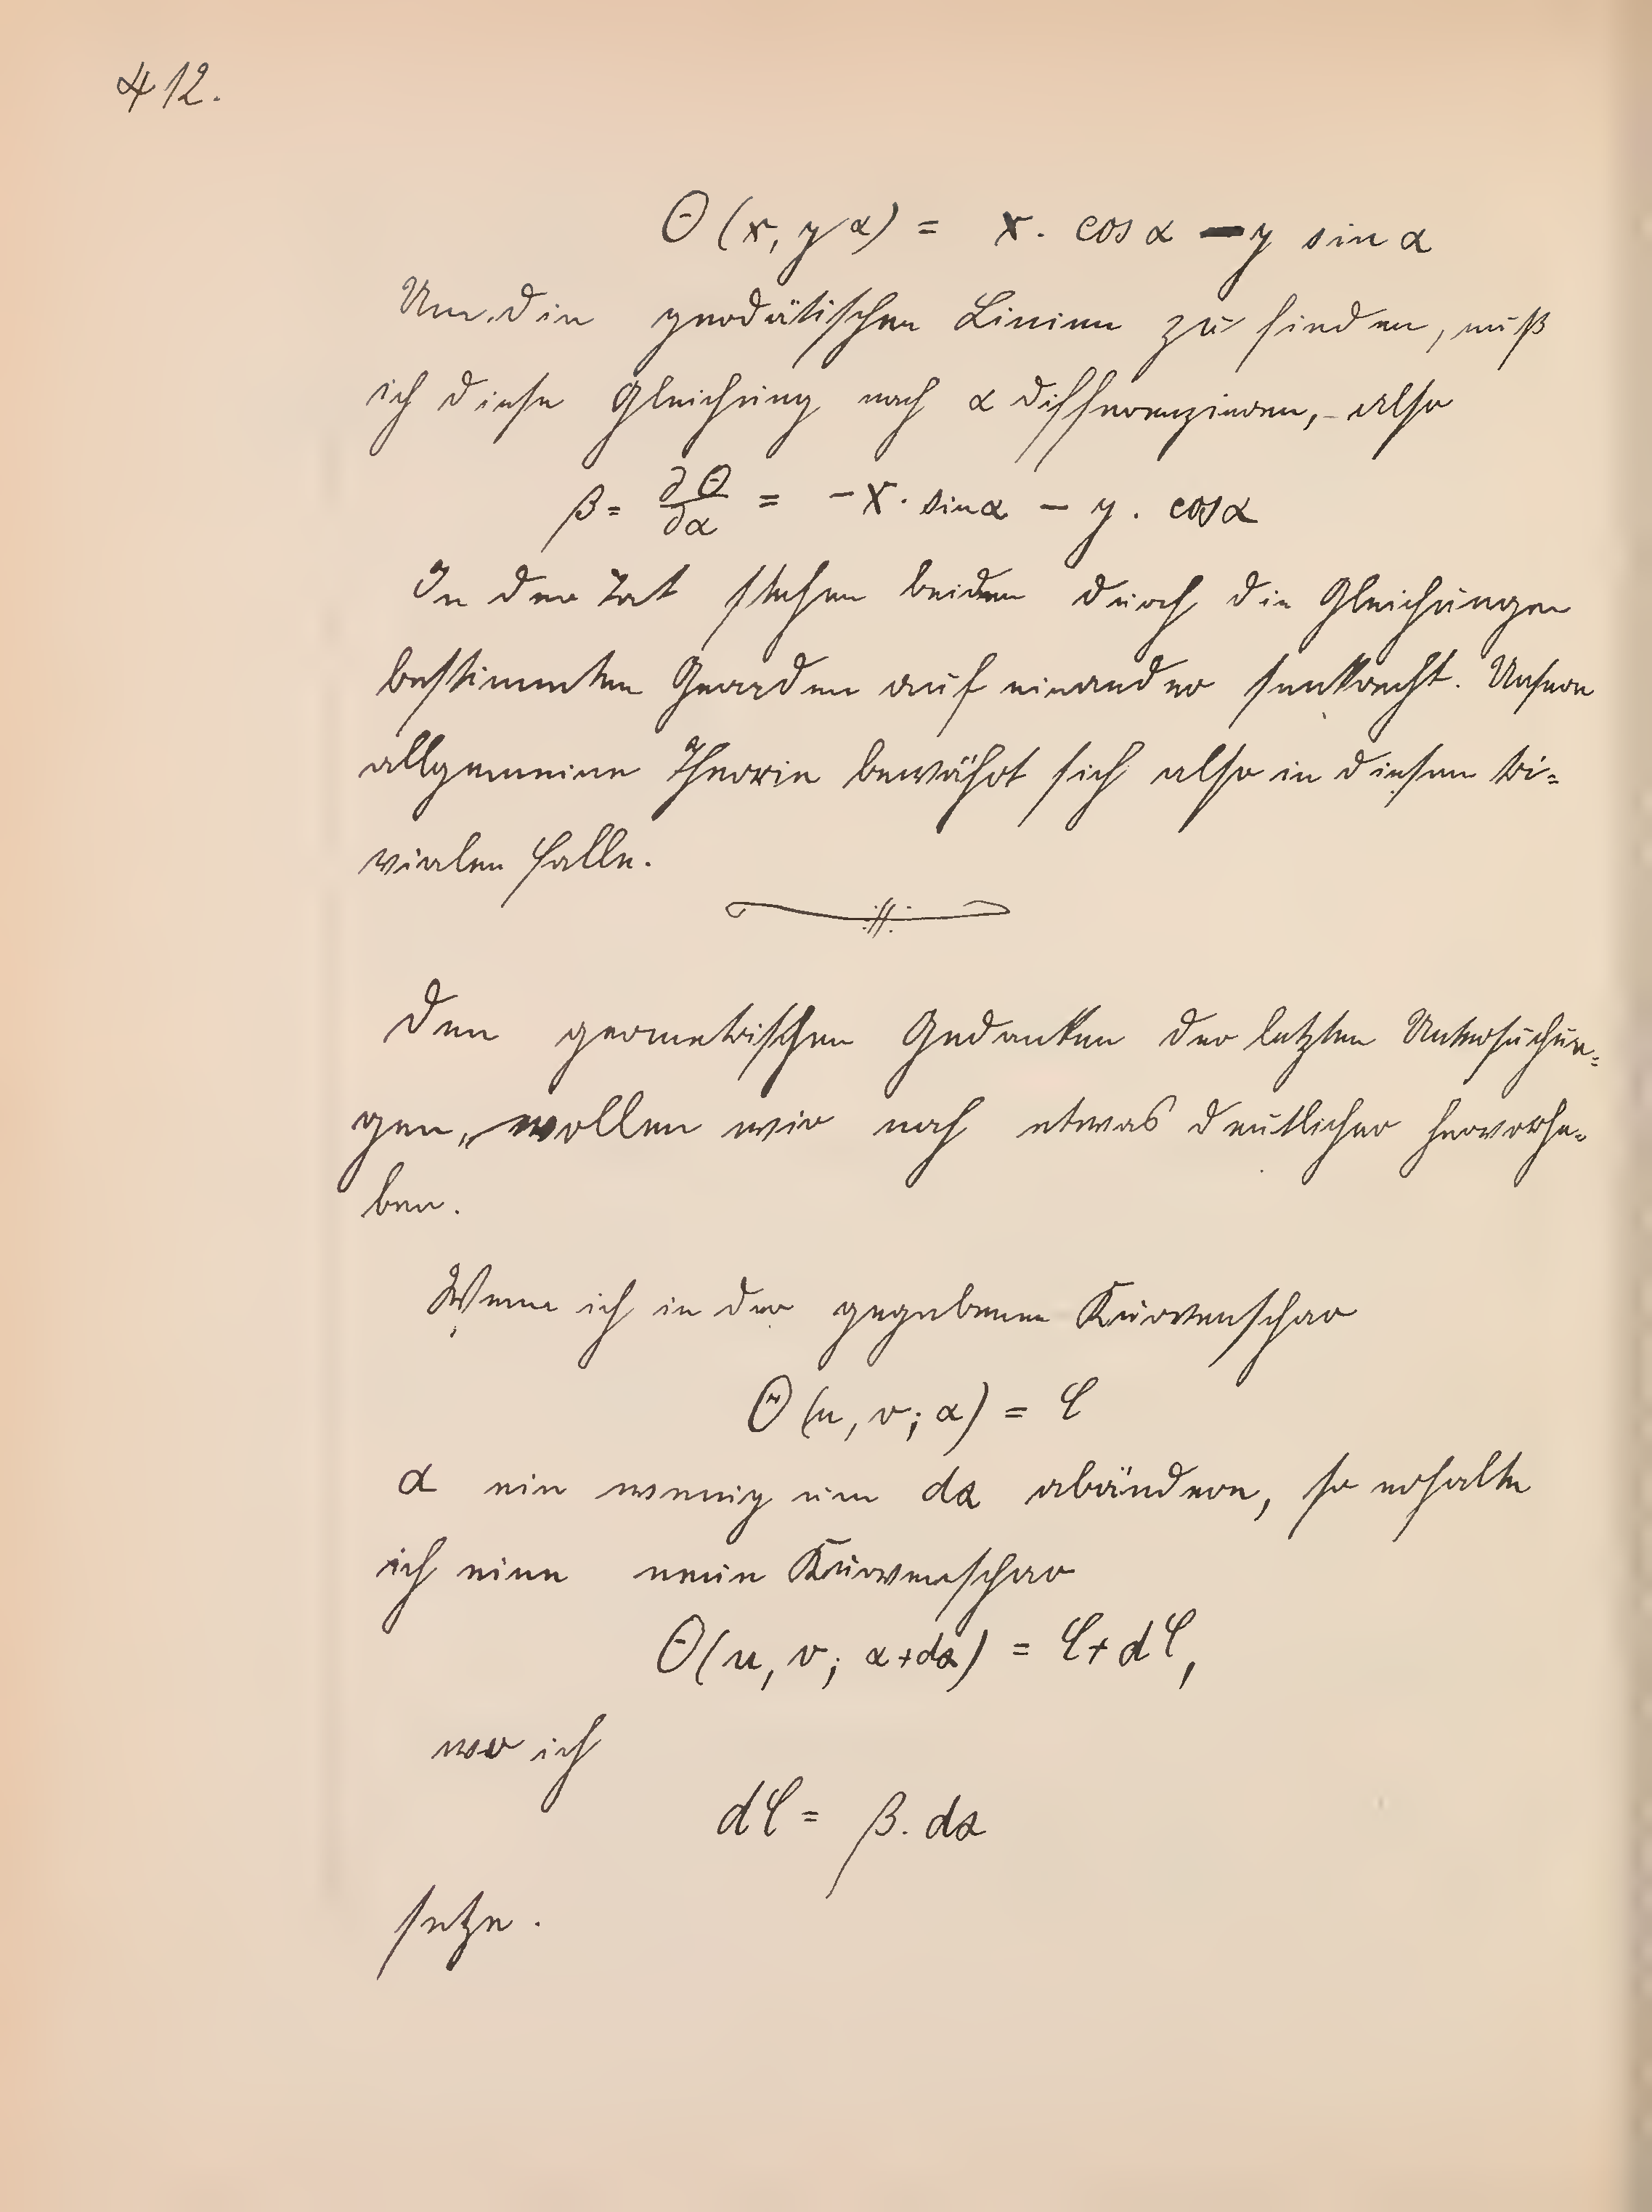 412.
Θ(x, y α) = x. cos α − y sin α
Um die geodätischen Linien zu finden, muß
ich diese Gleichung nach α differenzieren, also
β = ∂Θ/∂α = −x · sin α − y. cos α
In der Tat stehen beiden durch die Gleichungen
bestimmten Geraden auf einander senkrecht. Unsere
allgemeine Theorie bewährt sich also in diesem tri=
vialen Falle.
Den geometrischen Gedanken der letzten Untersuchun=
gen, wollen wir noch etwas deutlicher hervorhe=
ben.
Wenn ich in der gegebenen Kurvenschar
Θ(u, v; α) = C
α ein wenig um dα abändere, so erhalte
ich eine neue Kurvenschar
Θ(u, v; α+dα) = C + dC,
wo ich
dC = β. dα
setze.